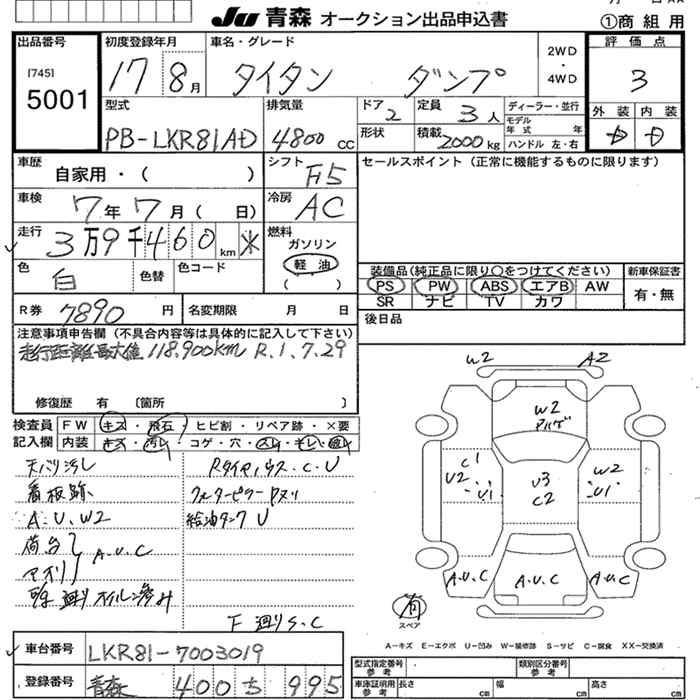 JU 青森 オークション出品申込書
①商組用
出品番号
[745]
5001
初度登録年月
17 8月
車名・グレード
タイタン ダンプ
2WD
・
4WD
評価点
3
外装 内装
D
型式
PB-LKR81AD
排気量
4800 CC
ドア
2
定員
3人
ディーラー・並行
モデル
年式 年
ハンドル 左・右
形状
積載
2000kg
車歴
自家用・( )
シフト
F5
セールスポイント (正常に機能するものに限ります)
車検
7年7月( 日)
冷房
AC
走行
3万9千460km ※
燃料
ガソリン
軽油
( )
色
白
色替
色コード
装備品(純正品に限り○をつけてください)
新車保証書
PS PW ABS エアB AW
SR ナビ TV カワ
有・無
R券
7890円
名変期限 月 日
後日品
注意事項申告欄 (不具合内容等は具体的に記入して下さい)
走行距離最大値 118,900km R.1.7.29
修復歴 有 〔箇所 〕
検査員
記入欄
FW キズ・飛石・ヒビ割・リペア跡・×要
内装 キズ・汚レ コゲ・穴・スレ・キレ・
天バリ汚レ
看板跡
A.U.W2
荷台
アオリ
A.U.C
オイル滲み
給油タンク U
F 廻りS.C
W2 A2
W2
C1
U2
U1
U3
C2
W2
U1
A.U.C A.U.C A.U.C
有
スペア
A－キズ E－エクボ U－凹み W－補修跡 S－サビ C－腐食 XX－交換済
車台番号
LKR81-7003019
登録番号
青森 400 ち 995
型式指定番号
参考
類別区分番号
参考
車庫証明用
参考
長さ cm 幅 cm 高さ cm